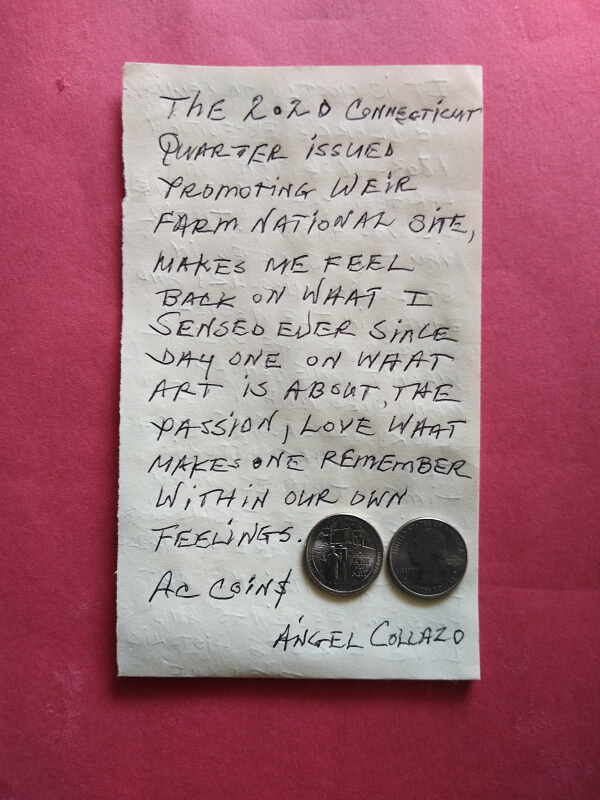 THE 2020 CONNECTICUT
QUARTER ISSUED
PROMOTING WEIR
FARM NATIONAL SITE,
MAKES ME FEEL
BACK ON WHAT I
SENSED EVER SINCE
DAY ONE ON WHAT
ART IS ABOUT, THE
PASSION, LOVE WHAT
MAKES ONE REMEMBER
WITHIN OUR OWN
FEELINGS.
AC COIN$
ÁNGEL COLLAZO